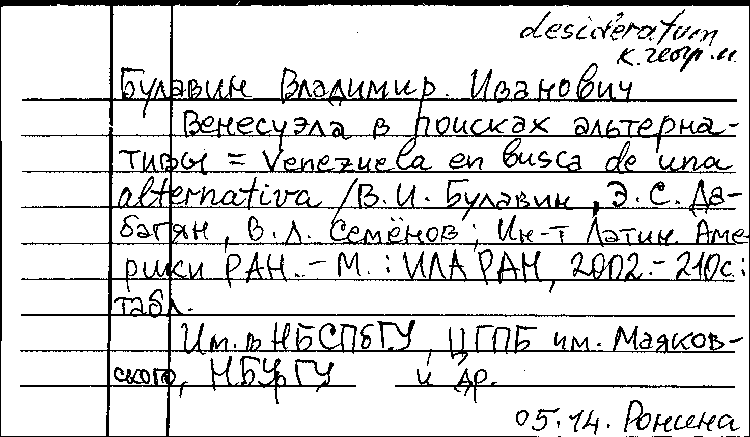 desideratum
к. геогр. н.
Булавин Владимир Иванович
Венесуэла в поисках альтерна-
тивы = Venezuela en busca de una
alternativa / В. И. Булавин, Э. С. Да-
багян, В. Л. Семёнов; Ин-т Латин. Аме-
рики РАН. - М.: ИЛА РАН, 2002. - 210с.:
табл.
Им. в НБСПбГУ, ЦГПБ им. Маяков-
ского, НБУрГУ и др.
05.14. Ронина